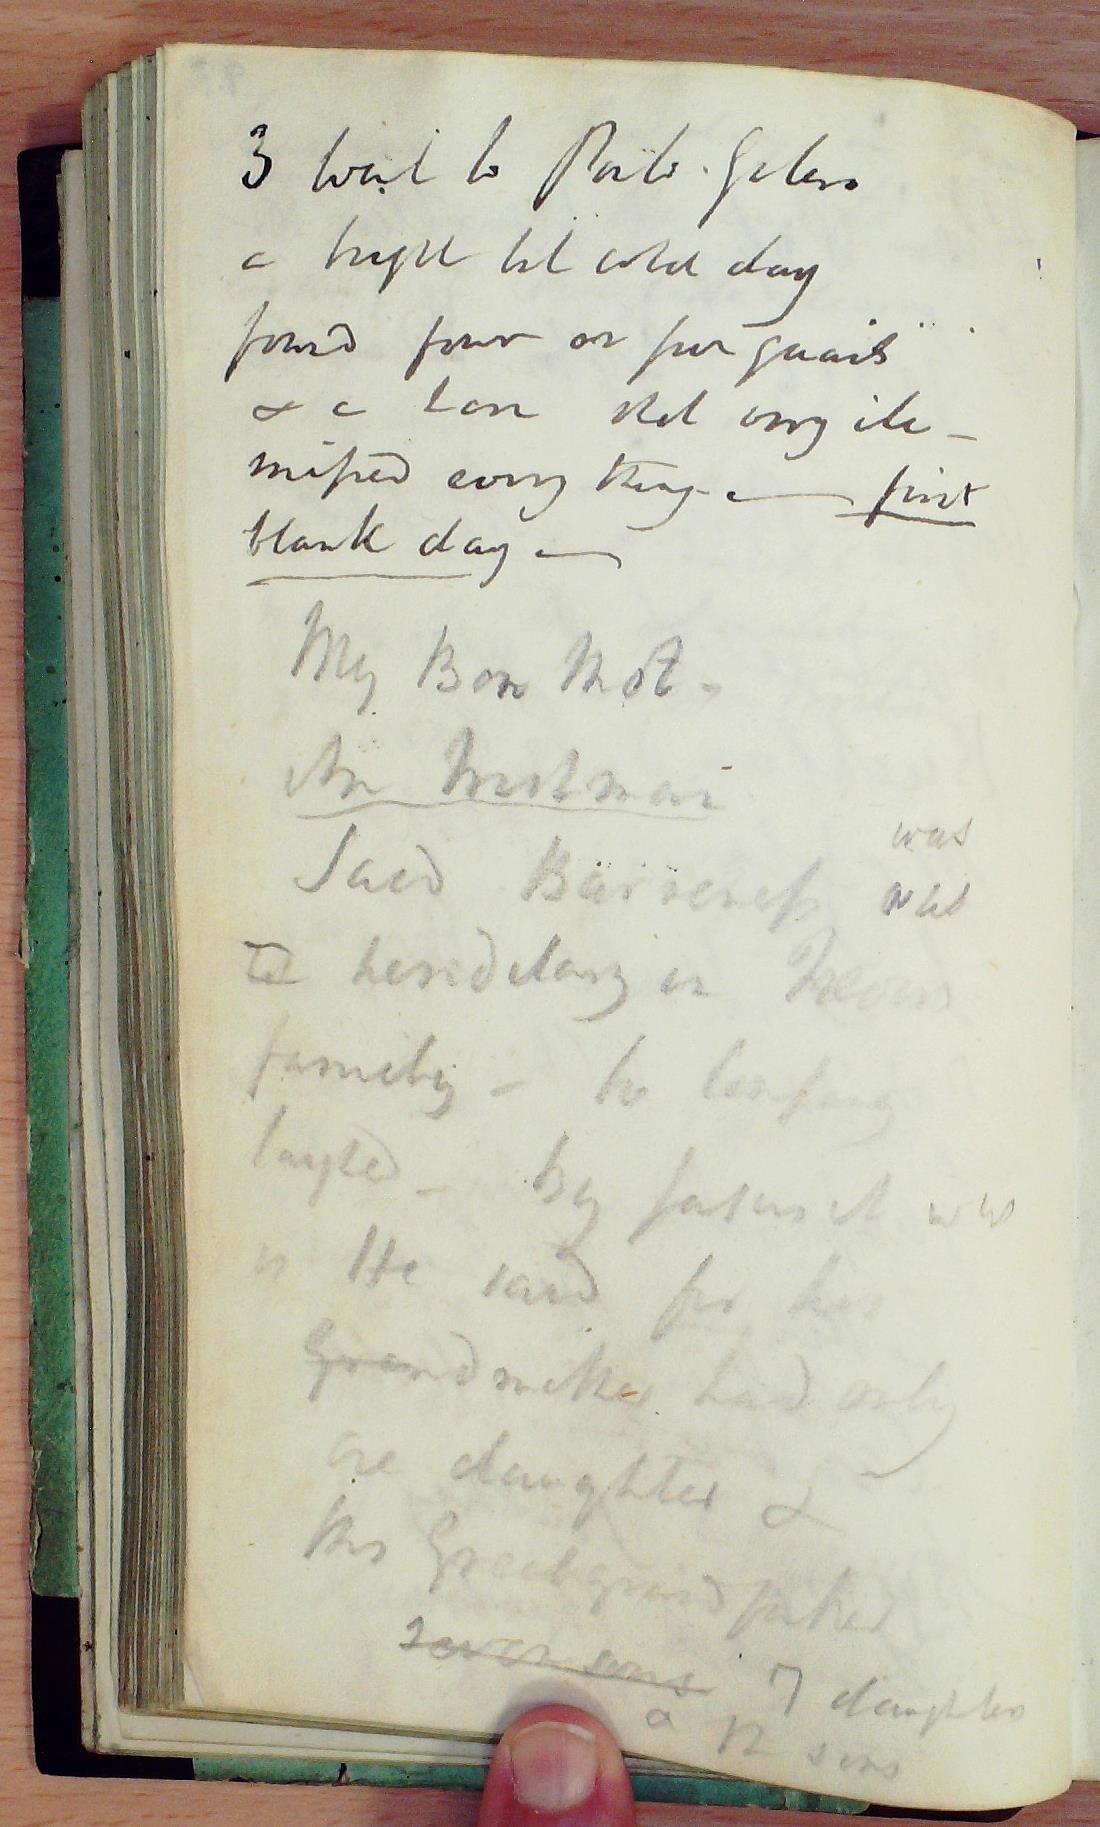 3 went to Porto Galera
a bright but cold day
found four or five quails
& a hare shot very ill –
missed every thing – first
blank day –
My Bon Mot –
An Irishman
Said Barreness was
was
hereditary in
family – the company
laughed – By Jasus it was
He said for his
Grandmother had only
one daughter &
his Great grandfather
seven sons 7 daughters
& 12 sons